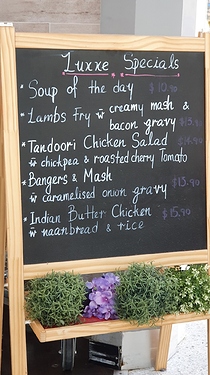 Luxxe Specials
* Soup of the day $10.90
* Lambs Fry w̄ creamy mash &
bacon gravy
* Tandoori Chicken Salad
w̄ chickpea & roasted cherry Tomato
* Bangers & Mash
w̄ caramelised onion gravy $15.90
* Indian Butter Chicken $15.90
w̄ naanbread & rice